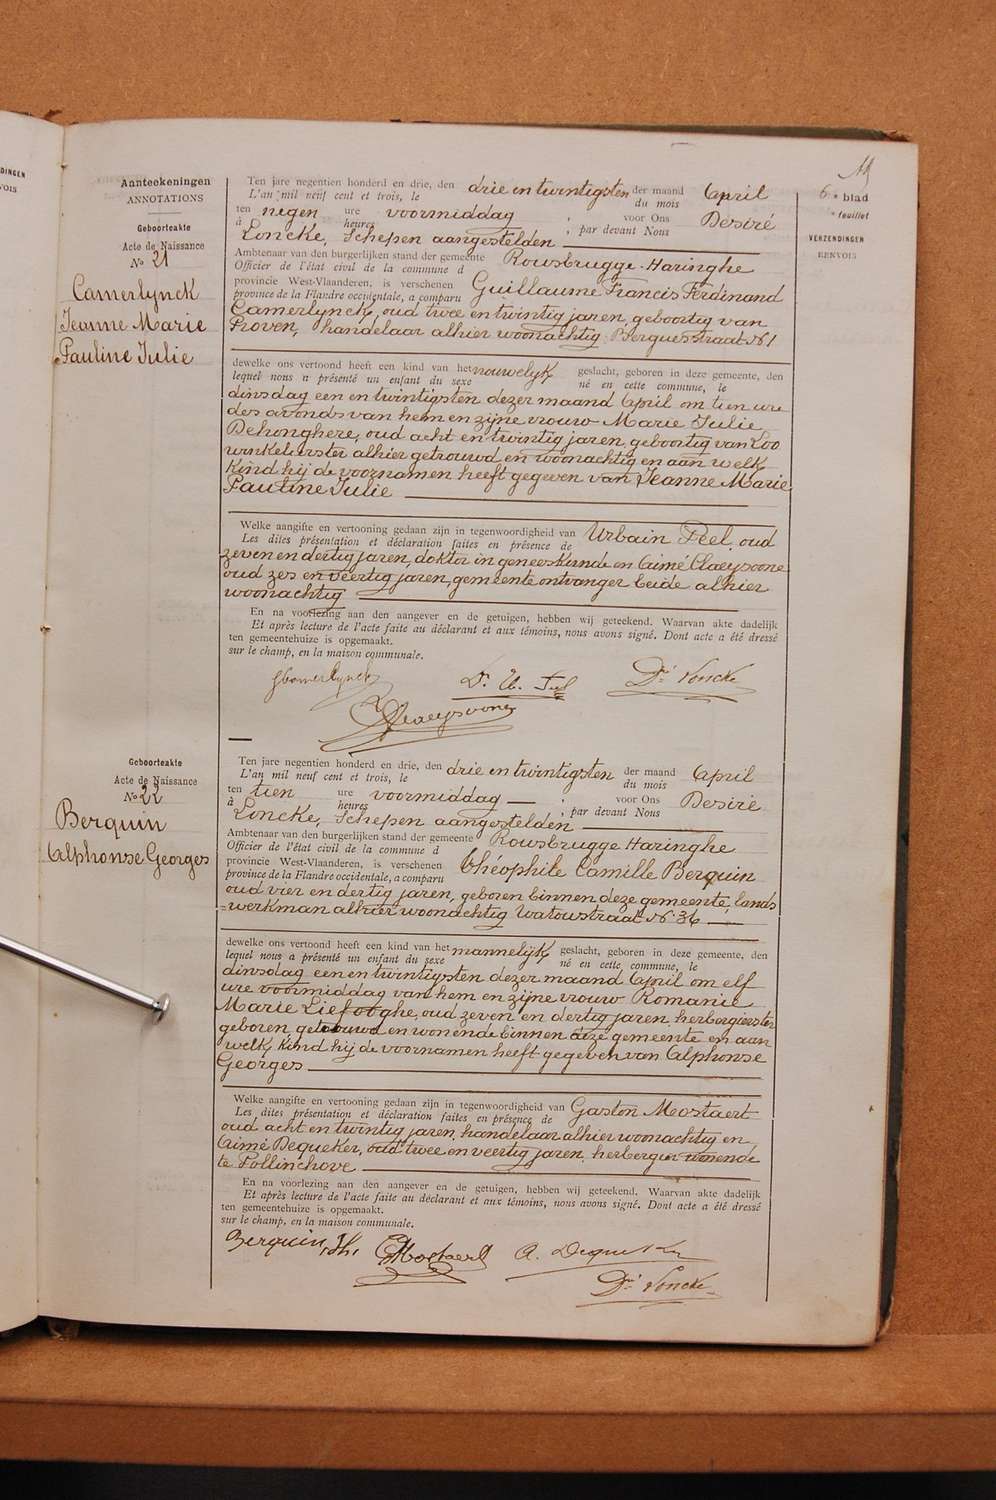 19
6e blad
e feuillet
VERZENDINGEN
RENVOIS
DINGEN
VOIS
Aanteekeningen
ANNOTATIONS
Geboorteakte
Acte de Naissance
No 21
Camerlynck
Jeanne Marie
Pauline Julie
Ten jare negentien honderd en drie, den drie en twintigsten der maand April
L'an mil neuf cent et trois, le du mois
ten negen ure voormiddag, voor Ons Desiré
à heures , par devant Nous
Loncke, Schepen aangestelden
Ambtenaar van den burgerlijken stand der gemeente Rousbrugge-Haringhe
Officier de l'état civil de la commune d
provincie West-Vlaanderen, is verschenen Guillaume Francis Ferdinand
province de la Flandre occidentale, a comparu
Camerlynck, oud twee en twintig jaren, geboortig van
Proven, handelaar alhier woonachtig Bergusstraat No 1
dewelke ons vertoond heeft een kind van het vrouwelijk geslacht, geboren in deze gemeente, den
lequel nous a présenté un enfant du sexe né en cette commune, le
dinsdag een en twintigsten dezer maand April om tien ure
des avonds van hem en zijne vrouw Marie Julie
Dehonghere, oud acht en twintig jaren, geboortig van Loo
winkelierster alhier getrouwd en woonachtig en aan welk
kind hij de voornamen heeft gegeven van Jeanne Marie
Pauline Julie
Welke aangifte en vertooning gedaan zijn in tegenwoordigheid van Urbain Feel, oud
Les dites présentation et déclaration faites en présence de
zeven en dertig jaren, doktor in geneeskunde en Aimé Claeysoone
oud zes en veertig jaren, gemeente ontvanger beide alhier
woonachtig
En na voorlezing aan den aangever en de getuigen, hebben wij geteekend. Waarvan akte dadelijk
Et après lecture de l'acte faite au déclarant et aux témoins, nous avons signé. Dont acte a été dressé
ten gemeentehuize is opgemaakt.
sur le champ, en la maison communale.
GCamerlynck Dr. U. Feel Dré Loncke
AClaeysoone
Geboorteakte
Acte de Naissance
No 22
Berquin
Alphonse Georges
Ten jare negentien honderd en drie, den drie en twintigsten der maand April
L'an mil neuf cent et trois, le du mois
ten tien ure voormiddag, voor Ons Desiré
à heures , par devant Nous
Loncke, Schepen aangestelden
Ambtenaar van den burgerlijken stand der gemeente Rousbrugge Haringhe
Officier de l'état civil de la commune d
provincie West-Vlaanderen, is verschenen Théophile Camille Berquin
province de la Flandre occidentale, a comparu
oud vier en dertig jaren, geboren binnen deze gemeente, lands
=werkman alhier woonachtig Watoustraat No 36
dewelke ons vertoond heeft een kind van het mannelijk geslacht, geboren in deze gemeente, den
lequel nous a présenté un enfant du sexe né en cette commune, le
dinsdag een en twintigsten dezer maand April om elf
ure voormiddag van hem en zijne vrouw Romanie
Marie Liefooghe, oud zeven en dertig jaren, herbergierster
geboren, getrouwd en wonende binnen deze gemeente en aan
welk kind hij de voornamen heeft gegeven van Alphonse
Georges
Welke aangifte en vertooning gedaan zijn in tegenwoordigheid van Gaston Mostaert
Les dites présentation et déclaration faites en présence de
oud acht en twintig jaren, handelaar alhier woonachtig en
Aimé Dequeker, oud twee en veertig jaren, herbergier wonende
te Pollinchove
En na voorlezing aan den aangever en de getuigen, hebben wij geteekend. Waarvan akte dadelijk
Et après lecture de l'acte faite au déclarant et aux témoins, nous avons signé. Dont acte a été dressé
ten gemeentehuize is opgemaakt.
sur le champ, en la maison communale.
Berquin, Th, GMostaert A. Dequeker
Dré Loncke